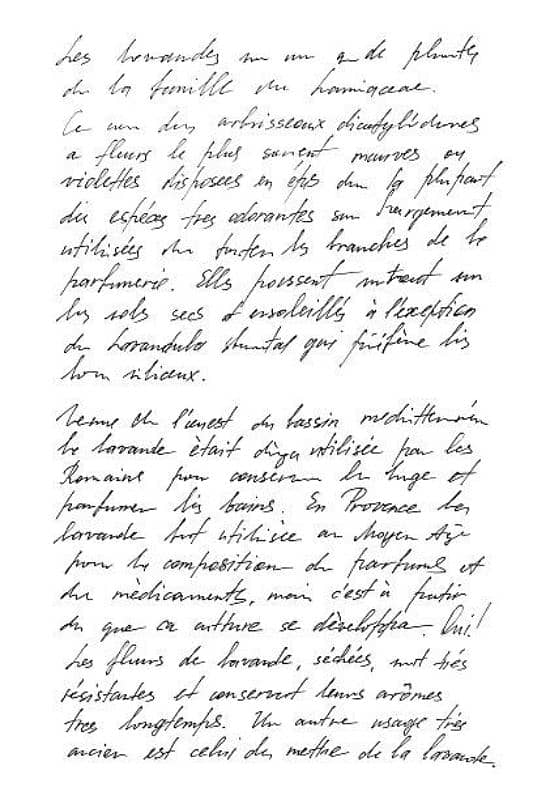 Les lavandes sont un genre de plantes
de la famille des Lamiaceae.
Ce sont des arbrisseaux dicotylédones
a fleurs le plus souvent mauves ou
violettes disposées en épis dont la plupart
des espéces tres odorantes sont largement
utilisées dans toutes les branches de la
parfumerie. Elles poussent surtout sur
les sols secs et ensoleillés à l'exception
de Lavandula qui préfère les
sols siliceux.
Venue de l'ouest du bassin mediterranéen
la lavande était dèja utilisée par les
Romains pour conserver le linge et
parfumer les bains. En Provence la
lavande fut utilisée au Moyen Age
pour la composition de parfums et
de mèdicaments, mais c'est à partir
du que sa culture se dèveloppa. Oui!
Les fleurs de lavande, séchées, sont trés
résistantes et conservent leurs arômes
tres longtemps. Un autre usage trés
ancien est celui de mettre de la lavande.